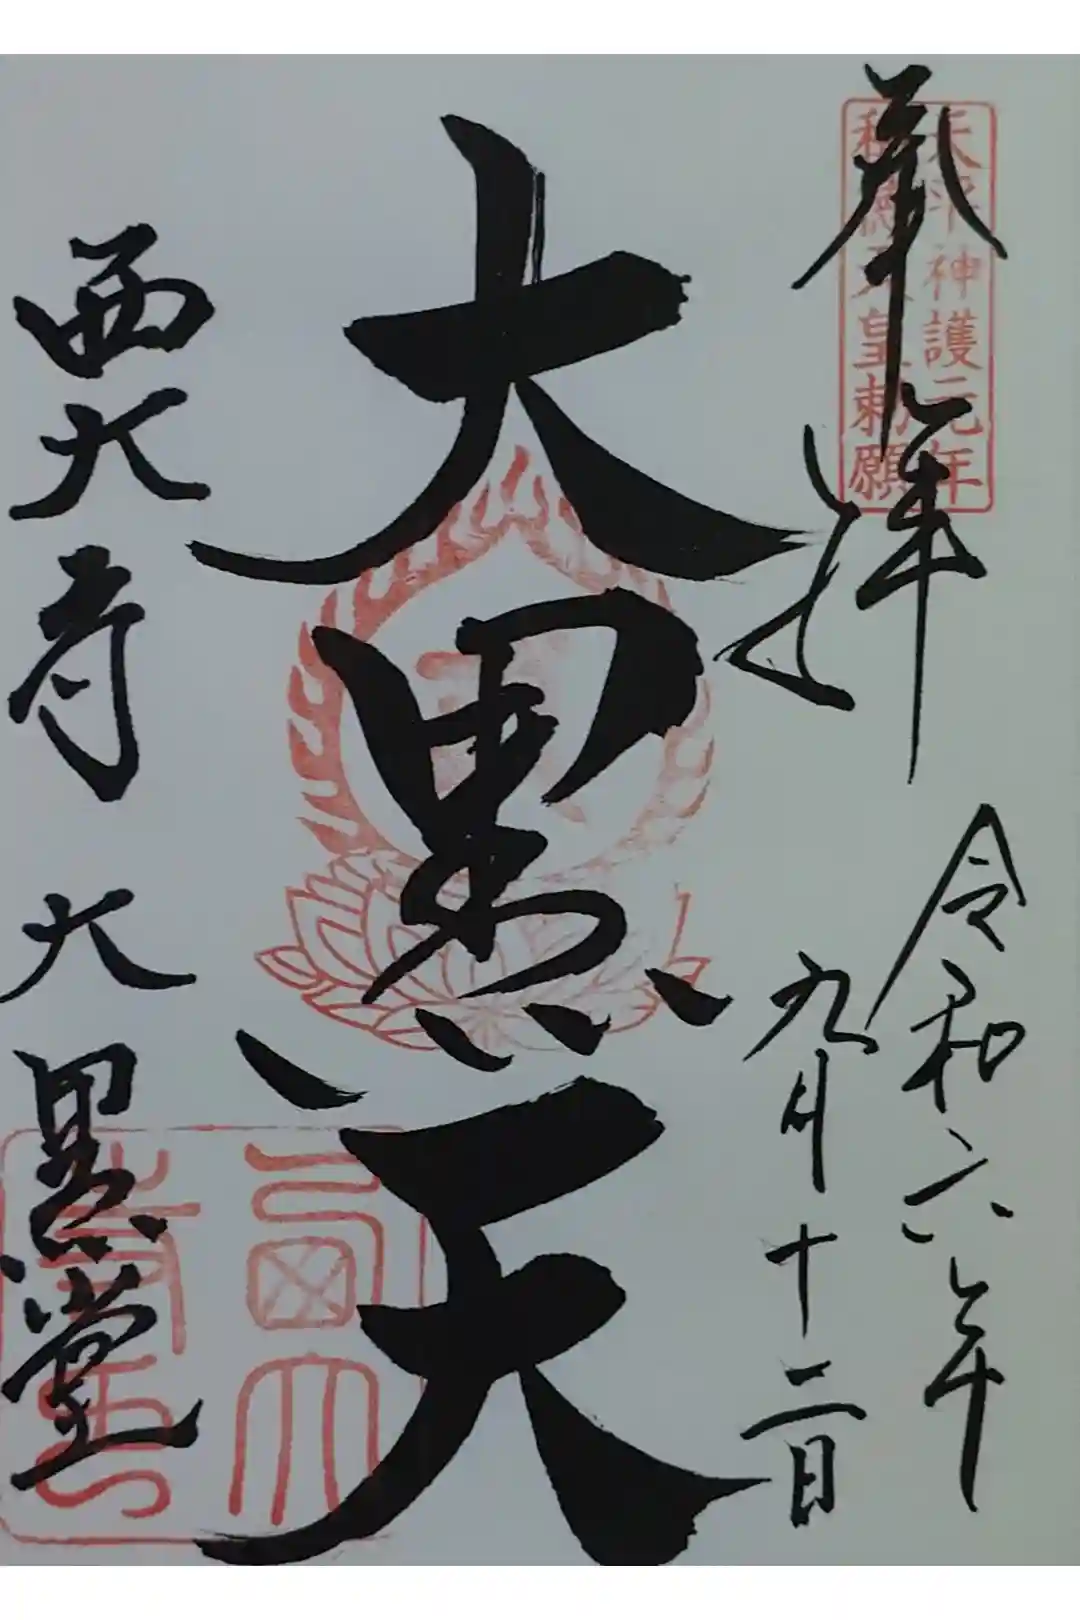 奉拝
天平神護元年
称徳天皇勅願
令和六年
九月十二日
大黒天
西大寺 大黒堂